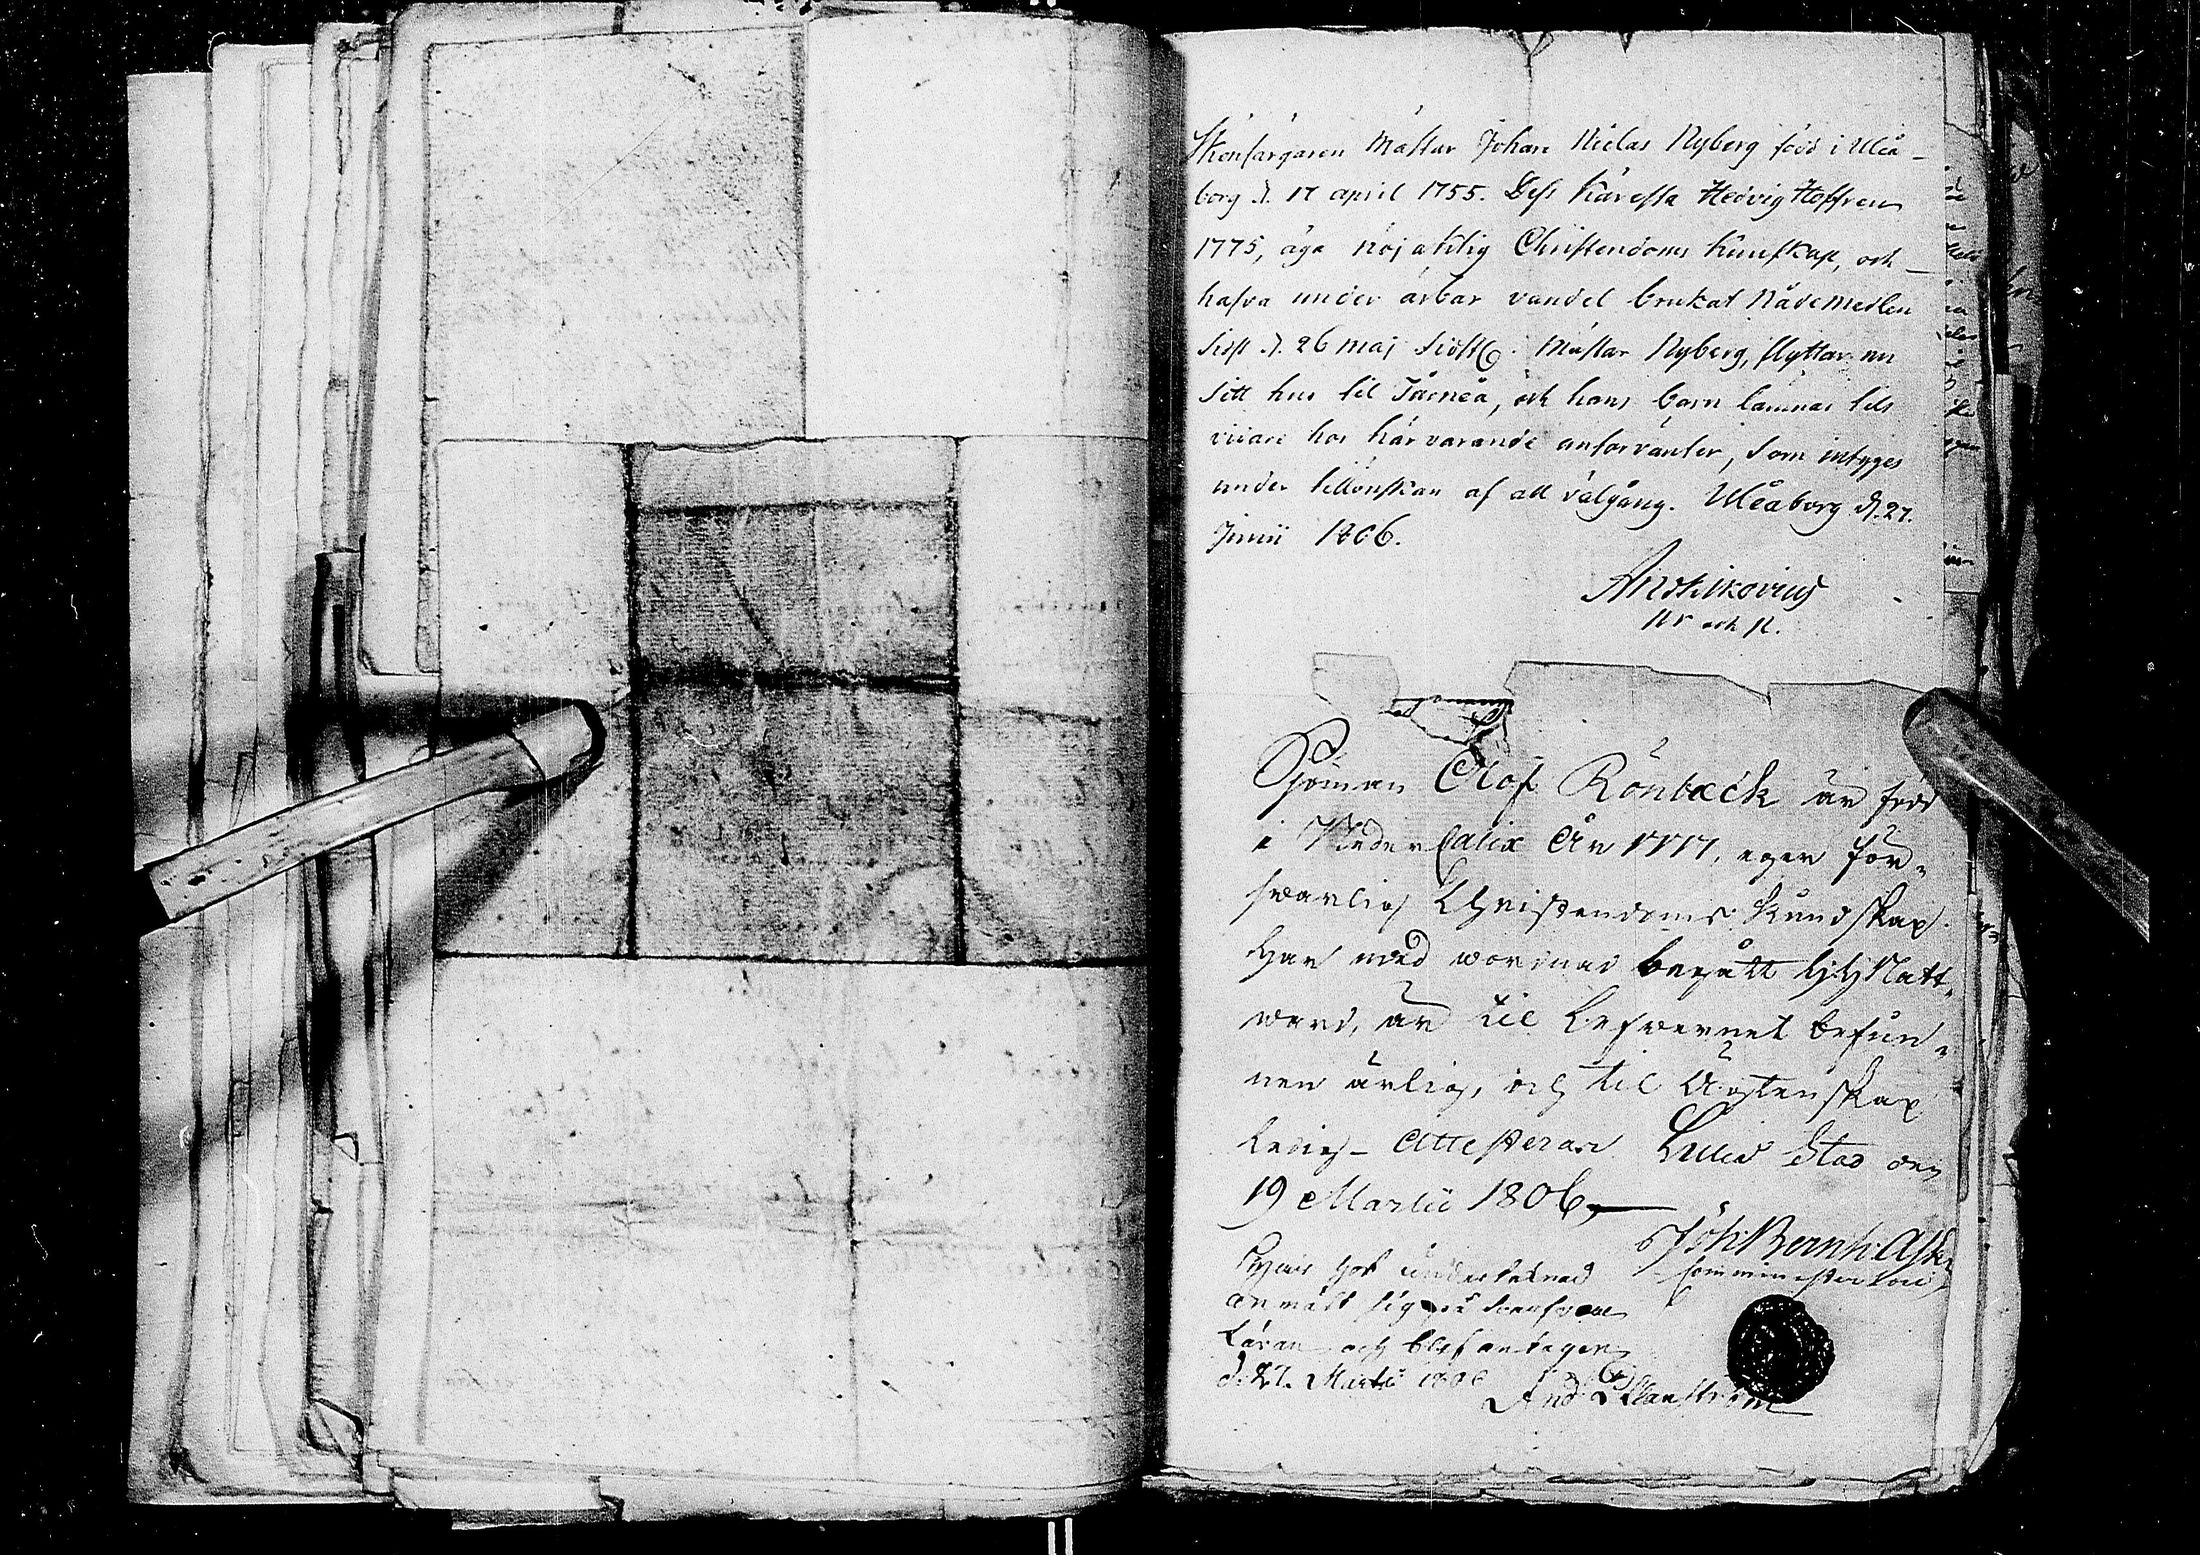 Skönfärgaren Mästar Johan Niclas Nyberg född i Uleå-
borg d. 17 april 1755. Dess Käresta Hedvig Hoffren
1775, äga nöjaktig Christendoms kunskap, och
hafva under ärbar vandel brukat Nådemedlen
sidst d. 26 maj sidstl. Mästar Nyberg, flyttar nu
sitt hus til Tårneå, och hans barn lämnas tils
vidare hos härvarande anförvanter, som intyges
under tillönskan af all välgång. Uleåborg d. 27.
Junii 1806.
Sjöman Olof Rönbäck är född
i Neder Calix År 1777, eger för-
swarlig Christendoms Kundskap.
Har med wördnad begått H. H. Natt-
ward, är til Lefwernet befun-
nen ärlig, och til Ägtenskap
ledig - Attesterar Luleå Stad den
19 Martii 1806,
Joh: Bernh: Ask
Comminister loci
undertecknad
anmält sig
och blef antagen
d. 27. Martii 1806
And: